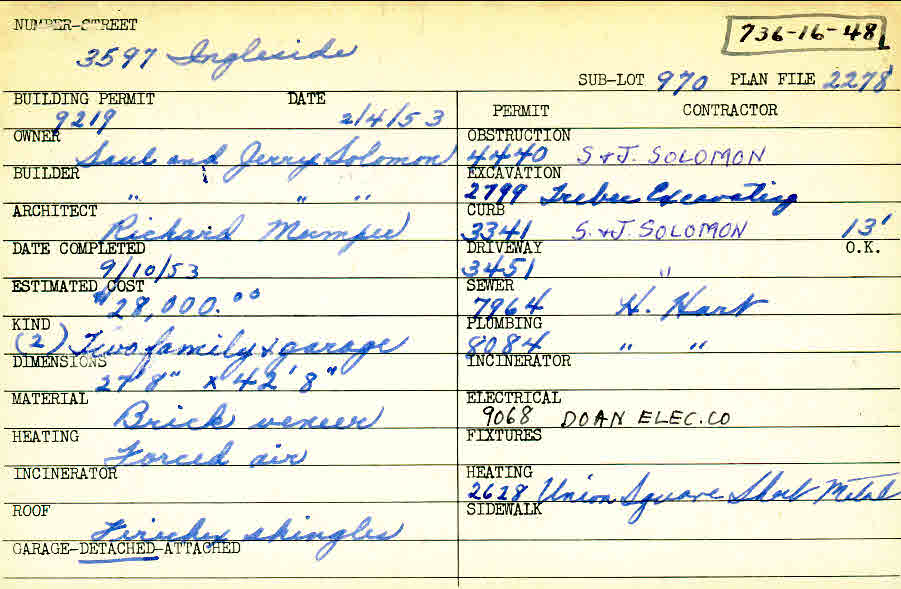 NUMBER-STREET
3597 Ingleside
736-16-48
SUB-LOT 970 PLAN FILE 2278
BUILDING PERMIT DATE
9219 2/4/53
OWNER
Saul and Jerry Solomon
BUILDER
" " "
ARCHITECT
Richard
DATE COMPLETED
9/10/53
ESTIMATED COST
$28,000.00
KIND
(2) Two family & garage
DIMENSIONS
27'8" x 42'8"
MATERIAL
Brick veneer
HEATING
Forced air
INCINERATOR
ROOF
shingles
GARAGE-DETACHED-ATTACHED
PERMIT CONTRACTOR
OBSTRUCTION
4440 S & J. SOLOMON
EXCAVATION
2799 Excavating
CURB
3341 S. & J. SOLOMON 13'
DRIVEWAY O.K.
3451 "
SEWER
7964 H. Hart
PLUMBING
8084 " "
INCINERATOR
ELECTRICAL
9068 DOAN ELEC. CO
FIXTURES
HEATING
2628 Union Square Sheet Metal
SIDEWALK